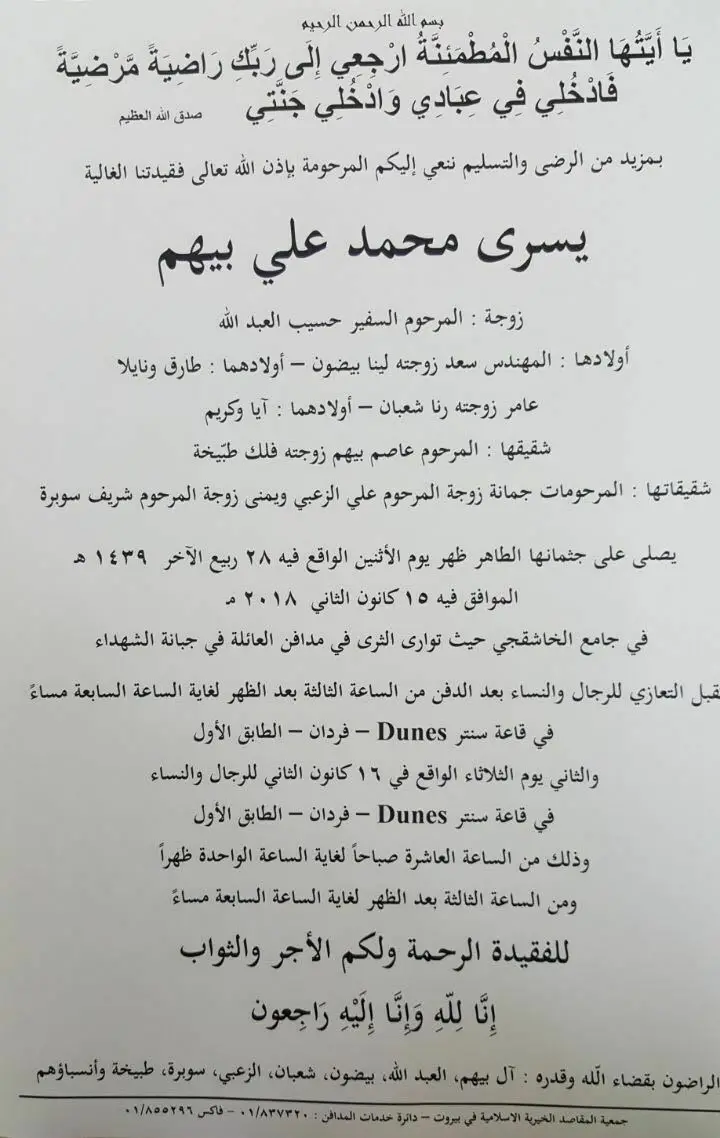 بسم الله الرحمن الرحيم
يَا أَيَّتُهَا النَّفْسُ الْمُطْمَئِنَّةُ ارْجِعِي إِلَى رَبِّكِ رَاضِيَةً مَّرْضِيَّةً
فَادْخُلِي فِي عِبَادِي وَادْخُلِي جَنَّتِي صدق الله العظيم
بمزيد من الرضى والتسليم ننعي إليكم المرحومة بإذن الله تعالى فقيدتنا الغالية
يسرى محمد علي بيهم
زوجة : المرحوم السفير حسيب العبد الله
أولادها : المهندس سعد زوجته لينا بيضون – أولادهما : طارق ونايلا
عامر زوجته رنا شعبان – أولادهما : آيا وكريم
شقيقها : المرحوم عاصم بيهم زوجته فلك طبّيخة
شقيقاتها : المرحومات جمانة زوجة المرحوم علي الزعبي ويمنى زوجة المرحوم شريف سوبرة
يصلى على جثمانها الطاهر ظهر يوم الأثنين الواقع فيه ٢٨ ربيع الآخر ١٤٣٩ هـ
الموافق فيه ١٥ كانون الثاني ٢٠١٨ مـ
في جامع الخاشقجي حيث توارى الثرى في مدافن العائلة في جبانة الشهداء
قبل التعازي للرجال والنساء بعد الدفن من الساعة الثالثة بعد الظهر لغاية الساعة السابعة مساءً
في قاعة سنتر Dunes – فردان – الطابق الأول
والثاني يوم الثلاثاء الواقع في ١٦ كانون الثاني للرجال والنساء
في قاعة سنتر Dunes – فردان – الطابق الأول
وذلك من الساعة العاشرة صباحاً لغاية الساعة الواحدة ظهراً
ومن الساعة الثالثة بعد الظهر لغاية الساعة السابعة مساءً
للفقيدة الرحمة ولكم الأجر والثواب
إِنَّا لِلّهِ وَإِنَّا إِلَيْهِ رَاجِعون
الراضون بقضاء الله وقدره : آل بيهم، العبد الله، بيضون، شعبان، الزعبي، سوبرة، طبيخة وأنسباؤهم
جمعية المقاصد الخيرية الاسلامية في بيروت – دائرة خدمات المدافن : ٠١/٨٣٧٣٢٠ – فاكس ٠١/٨٥٥٢٩٦